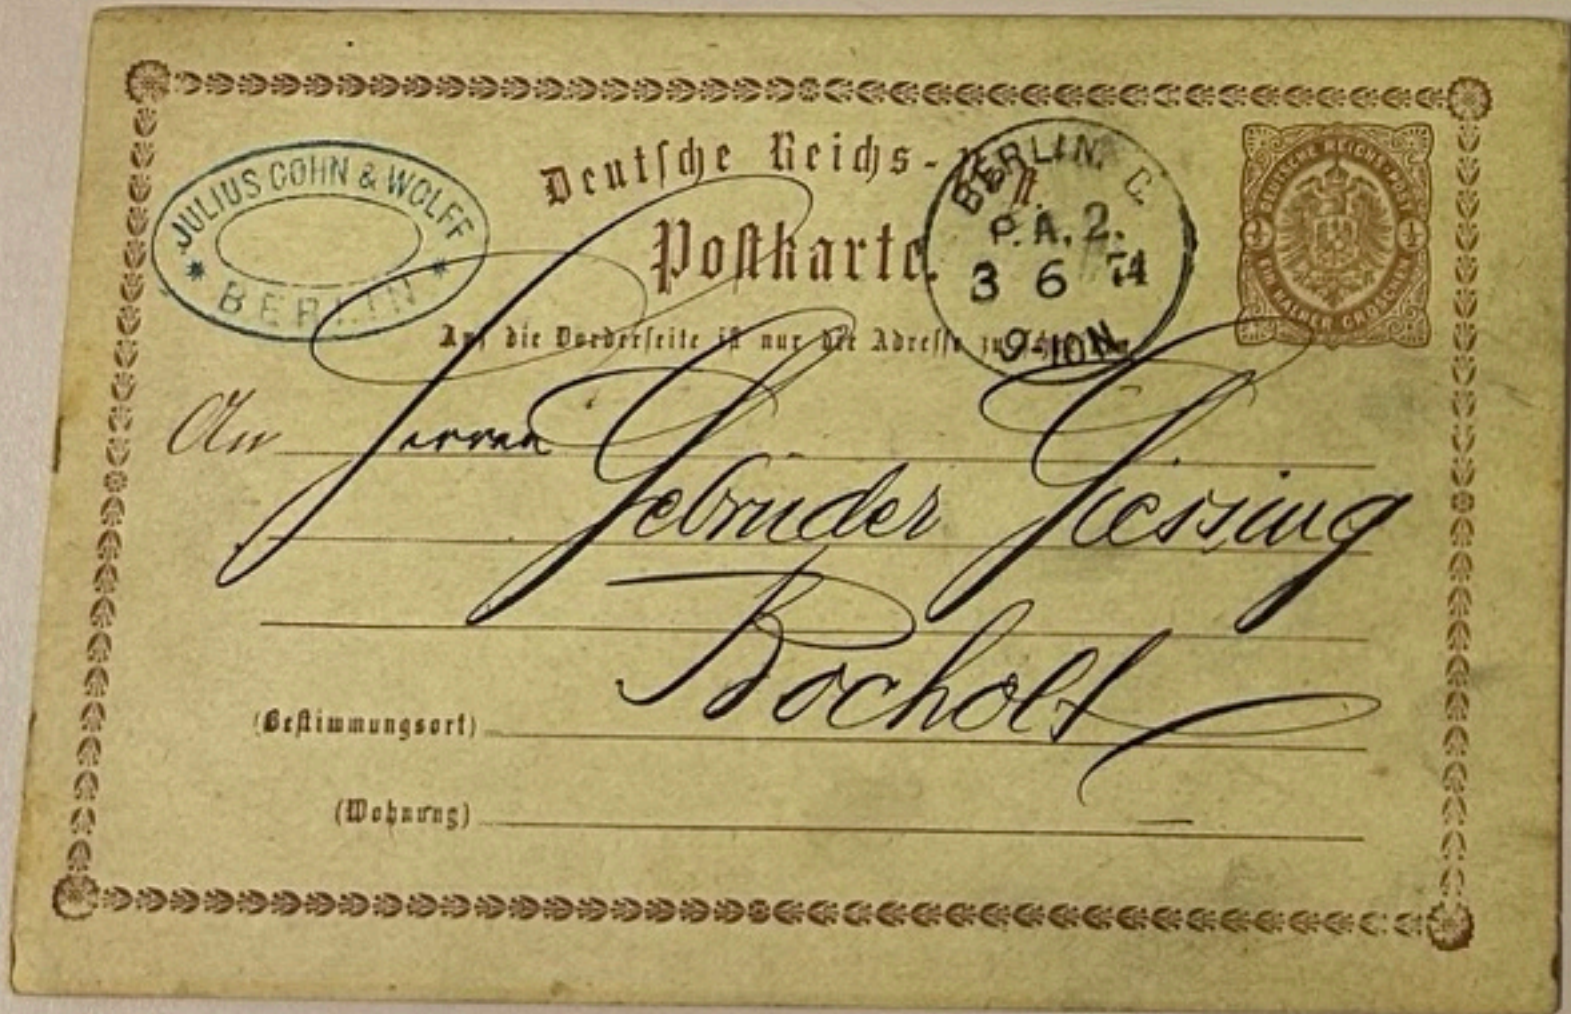 JULIUS COHN & WOLFF
* BERLIN *
Deutsche Reichs-
Postkarte.
BERLIN. C.
P.A. 2.
3 6 74
9-10N
DEUTSCHE REICHS-POST
½ ½
EIN HALBER GROSCHEN
Auf die Vorderseite ist nur die Adresse zu
An Herren
Gebrüder Giessing
Bocholt
(Bestimmungsort)
(Wohnung)